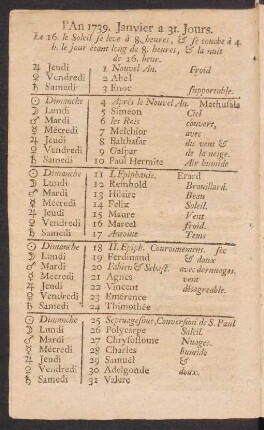 l'An 1739. Janvier a 31. Jours.
Le 16. le Soleil se leve à 8. heures, & se couche à 4.
h. le jour étant long de 8. heures, & la nuit
de 16. heur.
♃ Jeudi 1 Nouvel An. Froid
♀ Vendredi 2 Abel
♄ Samedi 3 Enoc supportable.
☉ Dimanche 4 Après le Nouvel An. Methusala
☽ Lundi 5 Simeon Ciel
♂ Mardi 6 les Rois couvert,
☿ Mécredi 7 Melchior avec
♃ Jeudi 8 Balthasar du vent &
♀ Vendredi 9 Gaspar de la neige.
♄ Samedi 10 Paul Hermite Air humide
☉ Dimanche 11 I. Epiphanie. Erard
☽ Lundi 12 Reinhold Brouillard.
♂ Mardi 13 Hilaire Beau
☿ Mécredi 14 Felix Soleil.
♃ Jeudi 15 Maure Vent
♀ Vendredi 16 Marcel froid.
♄ Samedi 17 Antoine Tems
☉ Dimanche 18 II. Epiph. Couronnement. sec
☽ Lundi 19 Ferdinand & doux
♂ Mardi 20 Fabien & Sebast. avec des nuages.
☿ Mécredi 21 Agnès vent
♃ Jeudi 22 Vincent désagreable.
♀ Vendredi 23 Emérence
♄ Samedi 24 Thimothée
☉ Dimanche 25 Septuagesime, Conversion de S. Paul
☽ Lundi 26 Polycarpe Soleil.
♂ Mardi 27 Chrysostome Nuages.
☿ Mécredi 28 Charles humide
♃ Jeudi 29 Samuël &
♀ Vendredi 30 Adelgonde doux.
♄ Samedi 31 Valere